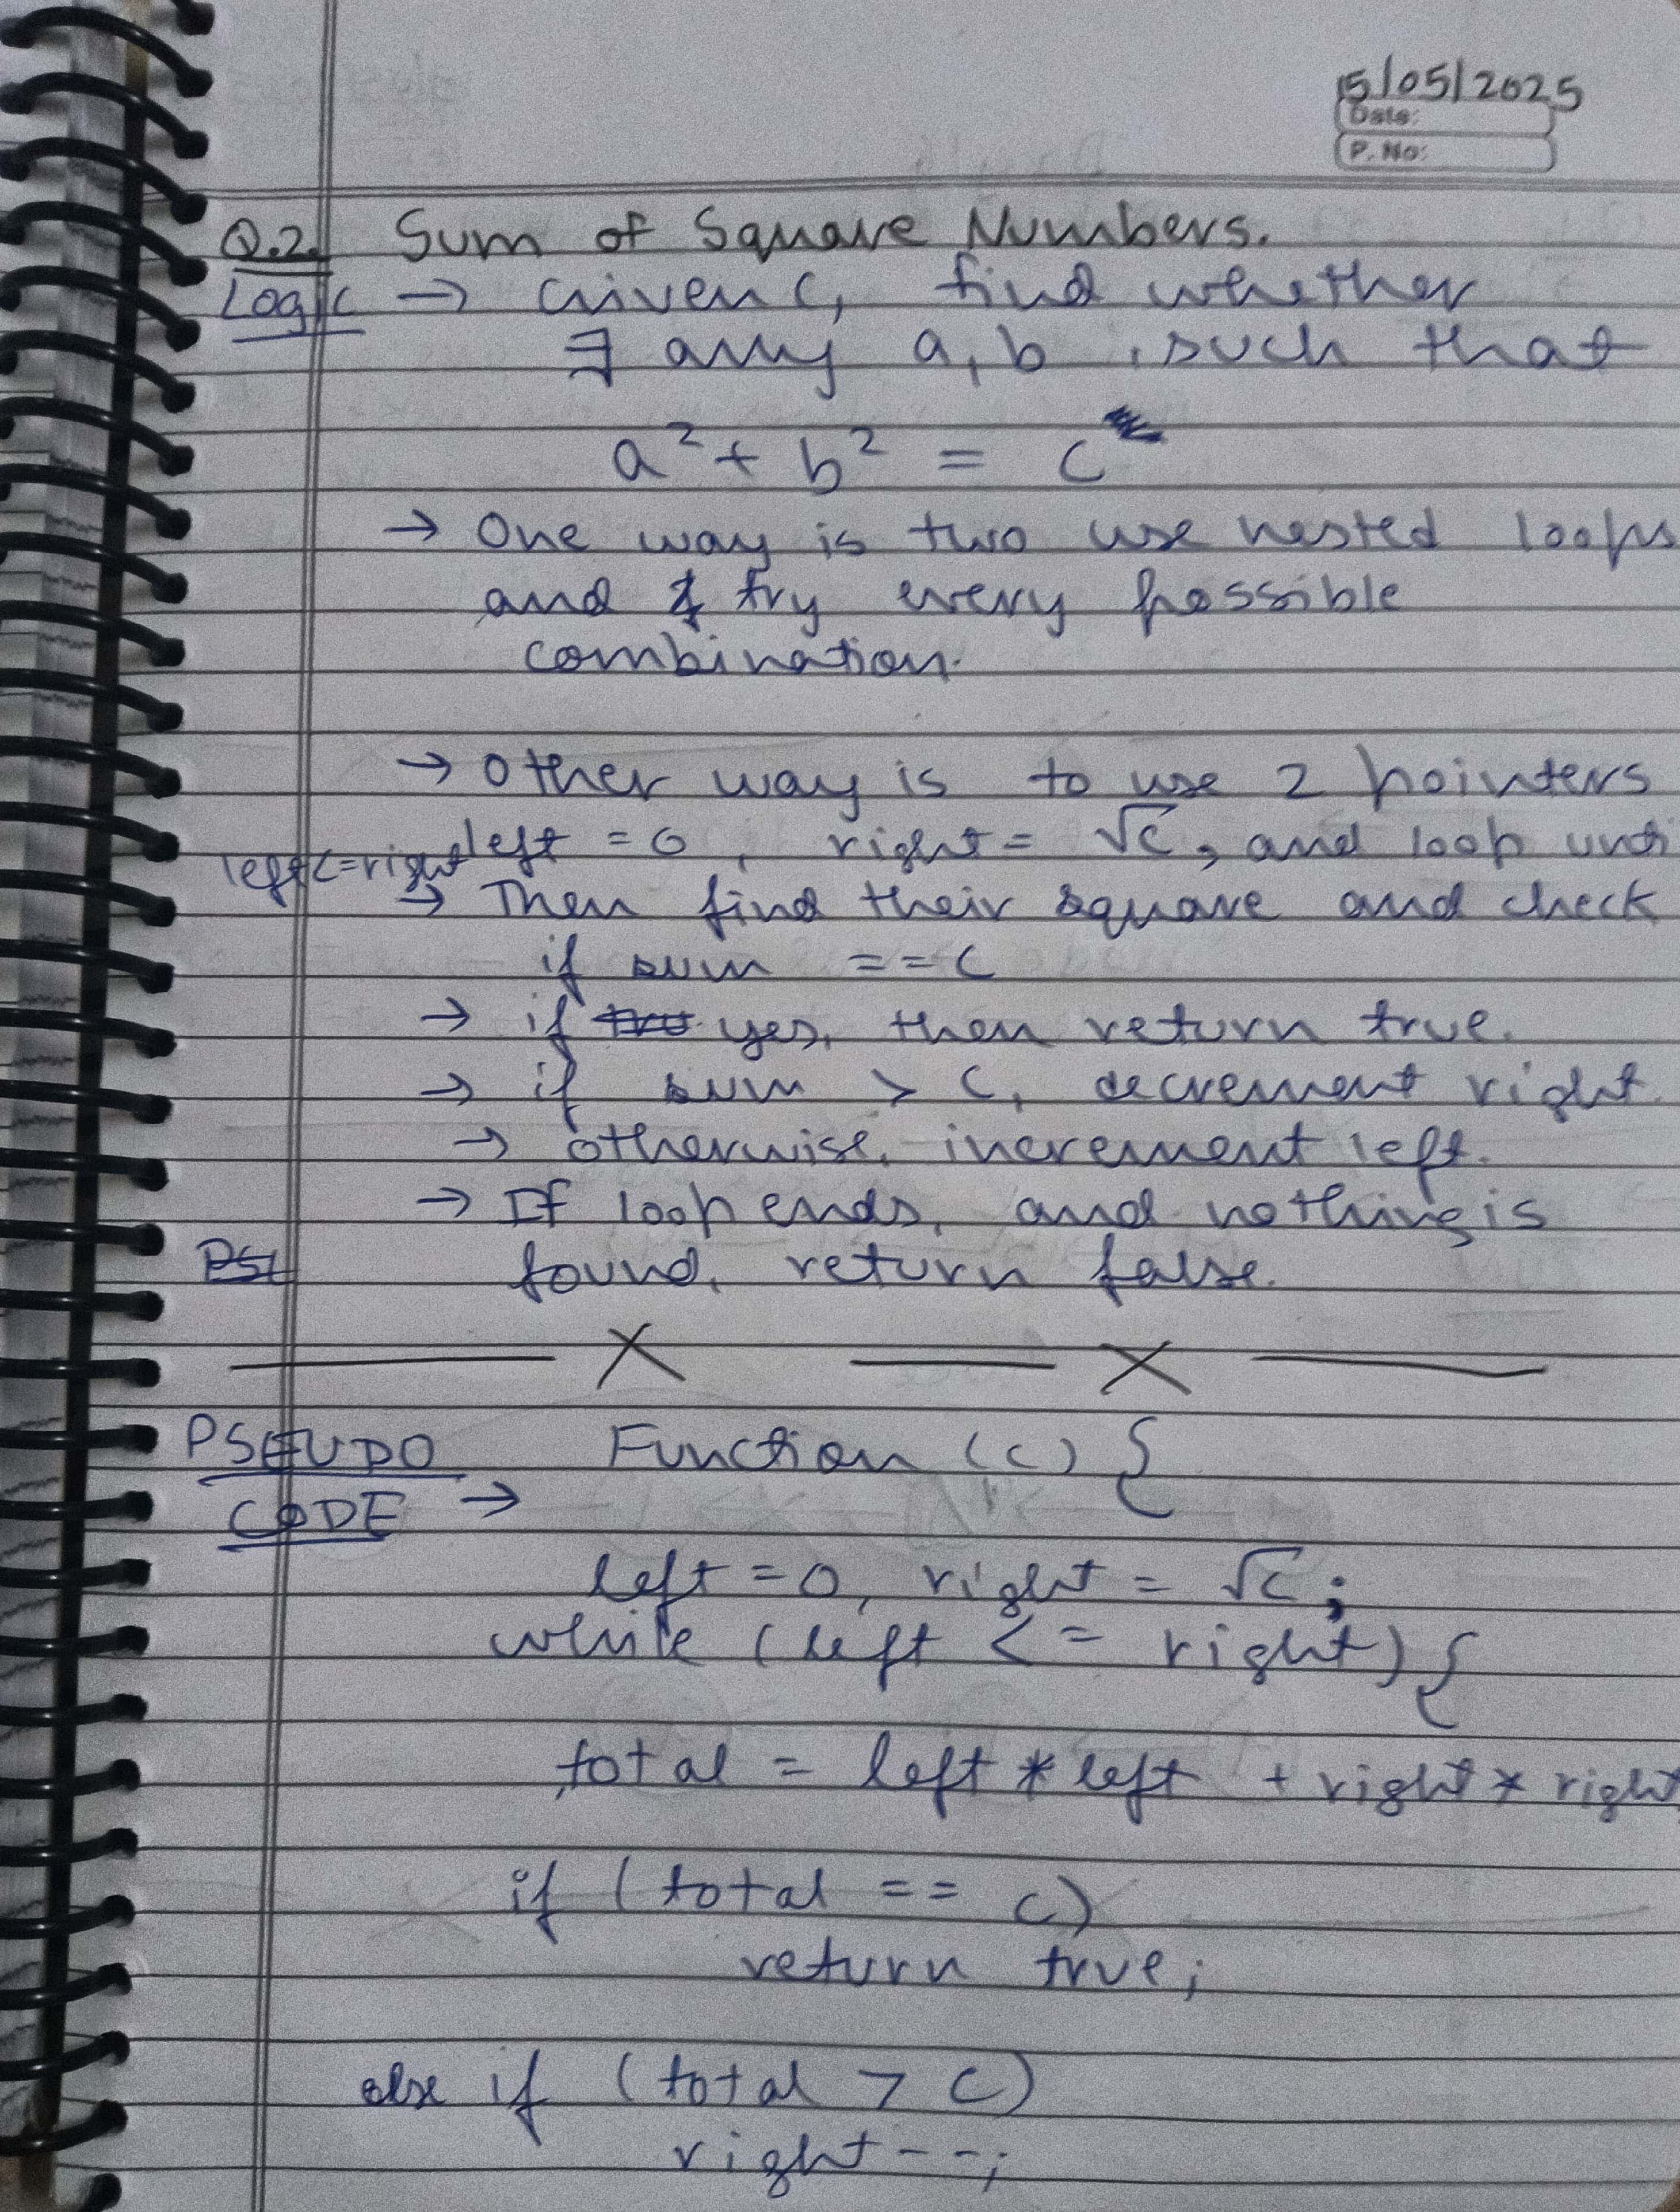 15/05/2025
Date:
P. No:
Q.2. Sum of Square Numbers.
Logic → Given C, find whether
∃ any a, b, such that
a² + b² = c
→ One way is two use nested loops
and try every possible
combination.
→ Other way is to use 2 pointers
left = 0, right = √c, and loop unti
left<=right
→ Then find their square and check
if sum == c
→ if tru yes, then return true.
→ if sum > c, decrement right.
→ otherwise, increment left.
→ If loop ends, and nothing is
PSE found, return false.
— X — X —
PSEUDO Function (c) {
CODE →
left = 0, right = √c;
while (left <= right) {
total = left * left + right * right
if (total == c)
return true;
else if (total > c)
right--;